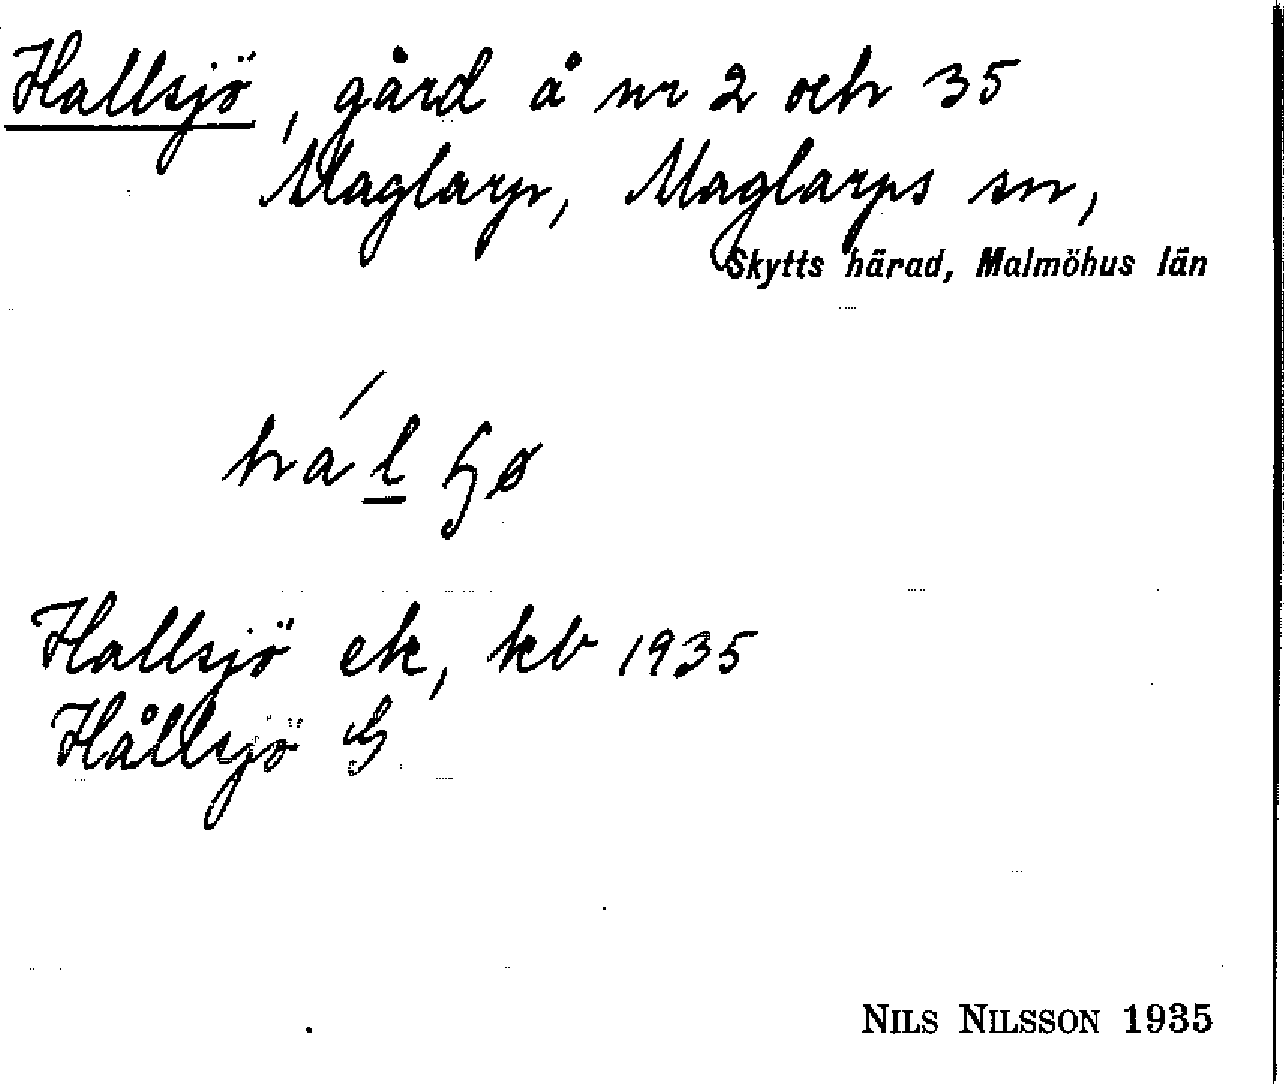 Hallsjö, gård å nr 2 och 35
Maglarp, Maglarps sn,
Skytts härad, Malmöhus län
Hallsjö ek, kb 1935
Hållsjö G
NILS NILSSON 1935